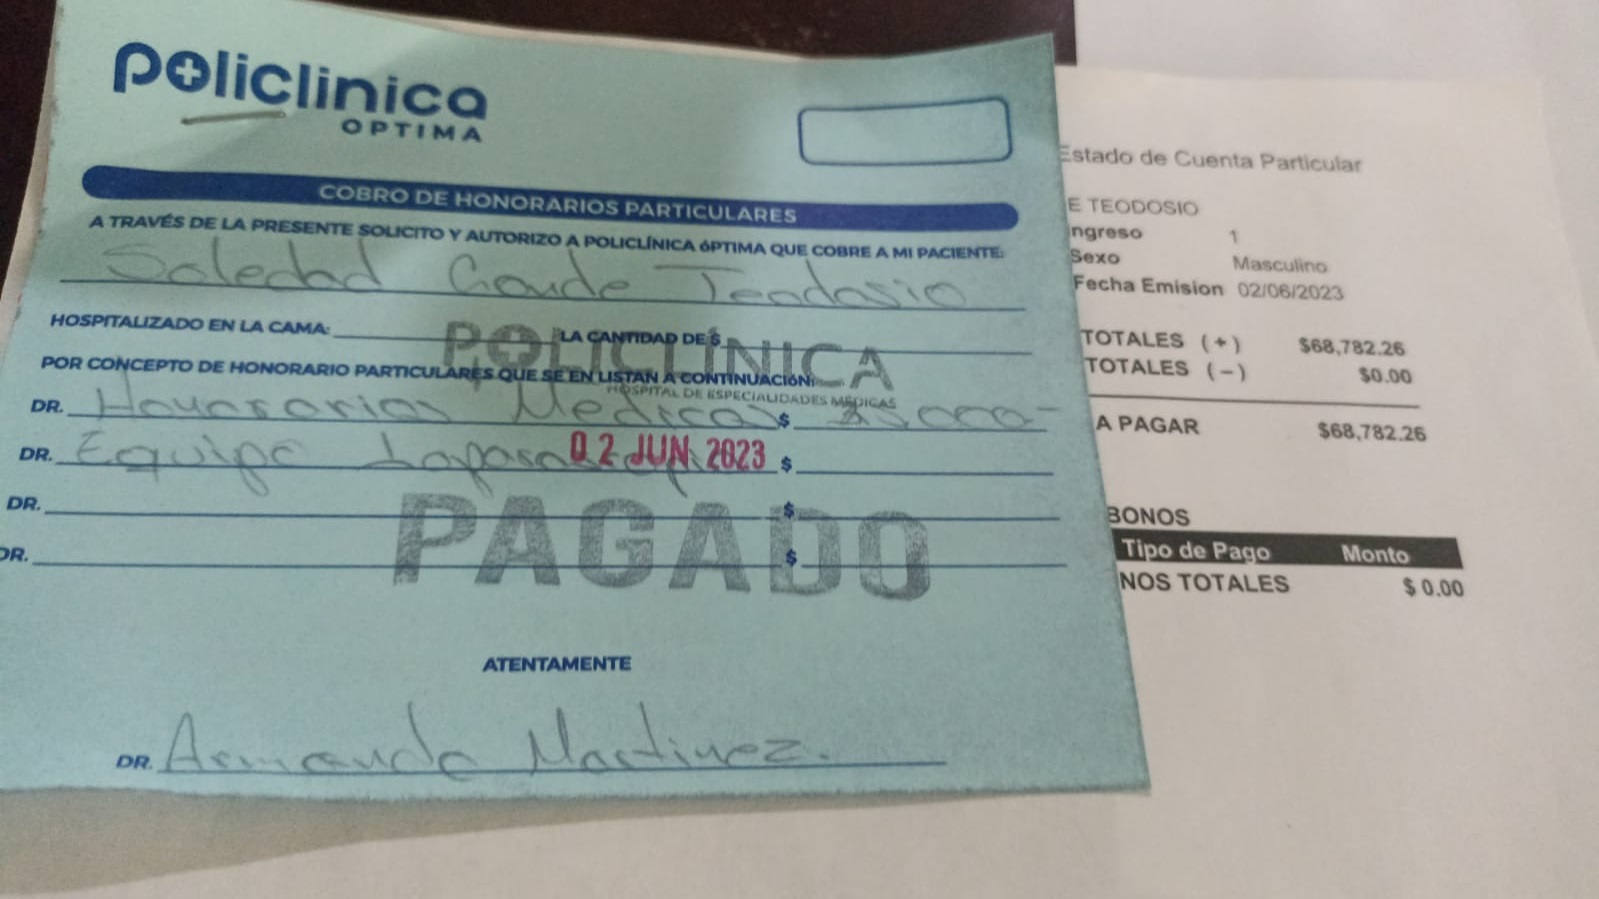 policlinica
OPTIMA
COBRO DE HONORARIOS PARTICULARES
A TRAVÉS DE LA PRESENTE SOLICITO Y AUTORIZO A POLICLÍNICA ÓPTIMA QUE COBRE A MI PACIENTE:
Soledad Conde Teodosio
HOSPITALIZADO EN LA CAMA: LA CANTIDAD DE $
POLICLÍNICA
POR CONCEPTO DE HONORARIO PARTICULARES QUE SE EN LISTAN A CONTINUACIÓN:
HOSPITAL DE ESPECIALIDADES MÉDICAS
DR. Honorarios Medicos $
DR. Equipo $
02 JUN. 2023
DR. $
PAGADO
DR. $
ATENTAMENTE
DR. Armando Martinez.
Estado de Cuenta Particular
E TEODOSIO
ngreso 1
Sexo Masculino
Fecha Emision 02/06/2023
TOTALES (+) $68,782.26
TOTALES (-) $0.00
A PAGAR $68,782.26
BONOS
Tipo de Pago Monto
NOS TOTALES $ 0.00